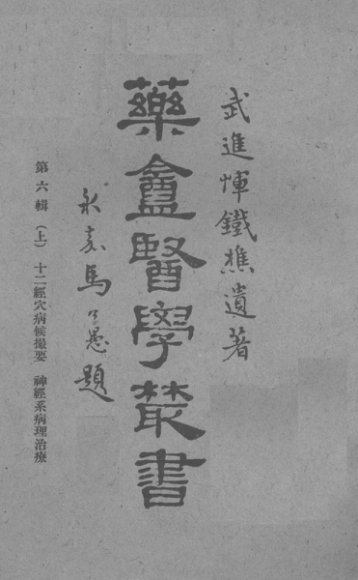 武進惲鐵樵遺著
藥盦醫學叢書
永嘉馬公愚題
第六輯（上） 十二經穴病候撮要 神經系病理治療